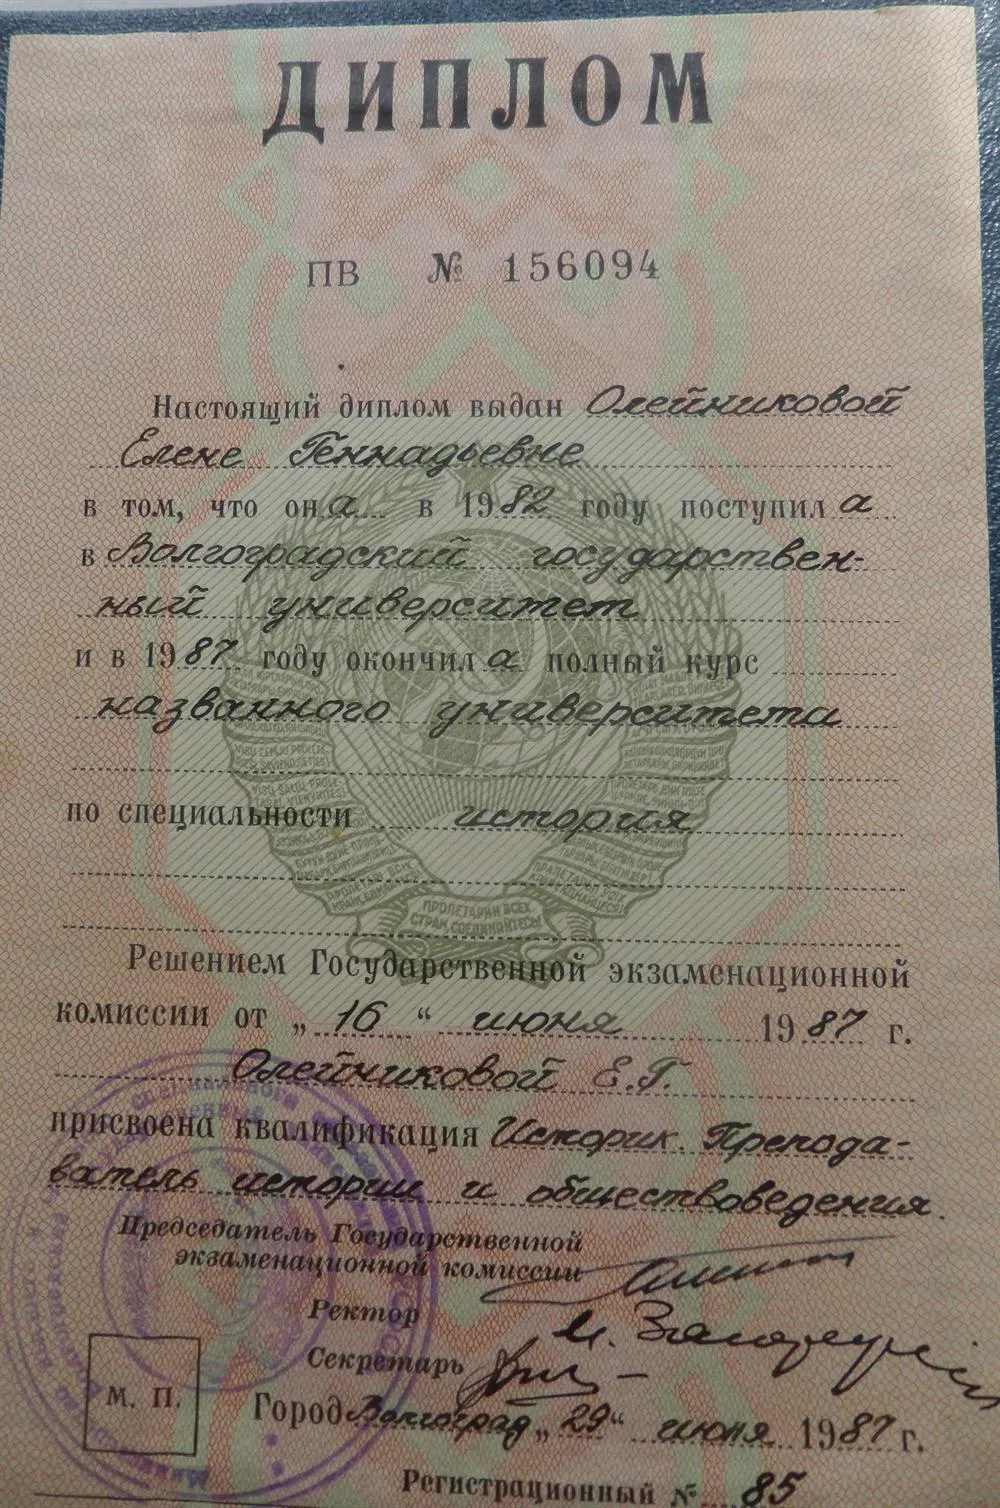 ДИПЛОМ
ПВ № 156094
Настоящий диплом выдан Олейниковой
Елене Геннадьевне
в том, что она в 1982 году поступила
в Волгоградский государствен-
ный университет
и в 1987 году окончила полный курс
названного университета
по специальности история
ПРОЛЕТАРИИ ВСЕХ
СТРАН СОЕДИНЯЙТЕСЬ!
Решением Государственной экзаменационной
комиссии от „16“ июня 1987 г.
Олейниковой Е.Г.
присвоена квалификация Историк. Препода-
ватель истории и обществоведения.
Председатель Государственной
экзаменационной комиссии
Ректор
Секретарь
М. П.
Город Волгоград „29“ июня 1987 г.
Регистрационный № 85